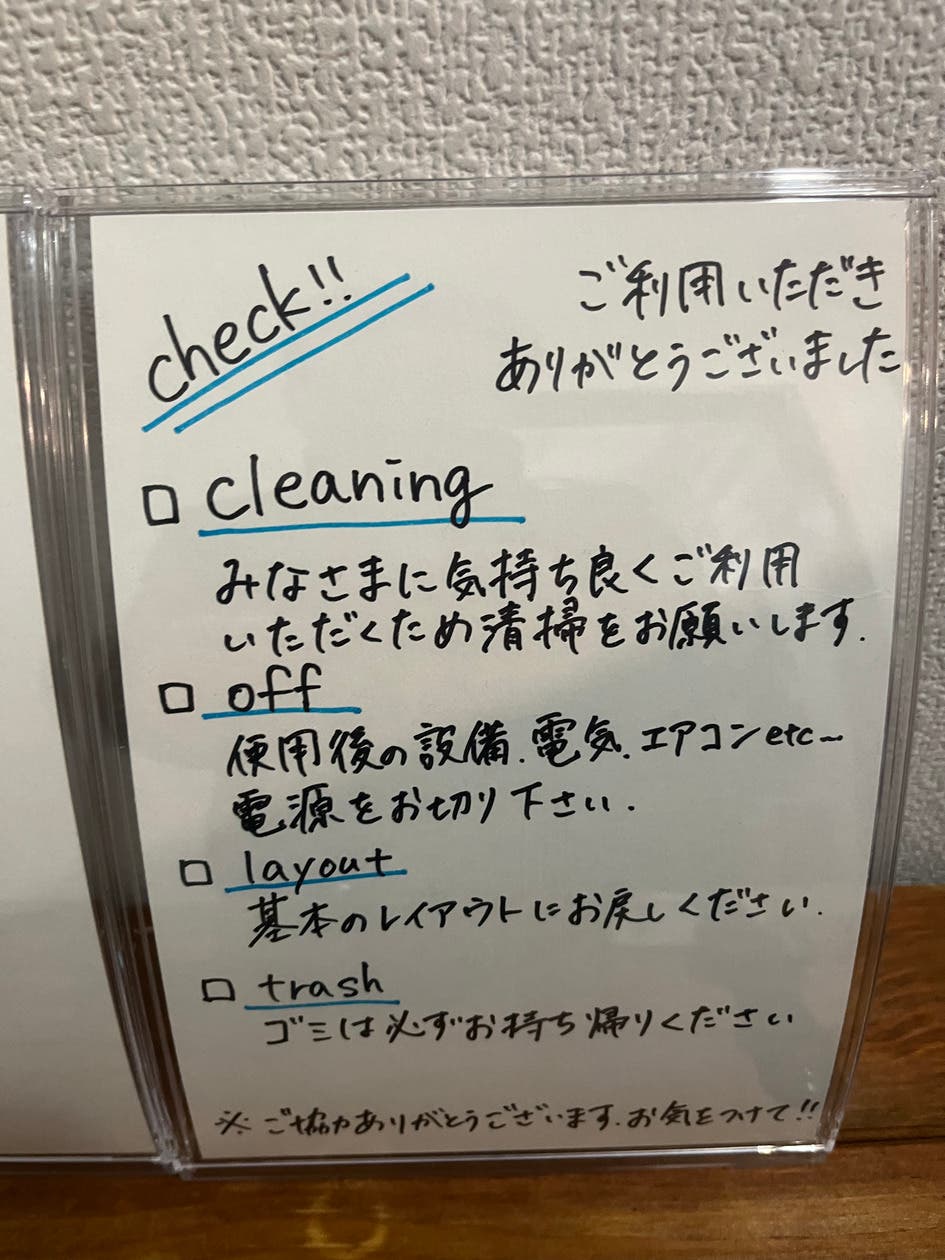 check!!
ご利用いただき
ありがとうございました
□ cleaning
みなさまに気持ち良くご利用
いただくため清掃をお願いします.
□ off
使用後の設備.電気.エアコンetc~
電源をお切り下さい.
□ layout
基本のレイアウトにお戻しください.
□ trash
ゴミは必ずお持ち帰りください
※ ご協力ありがとうございます.お気をつけて!!